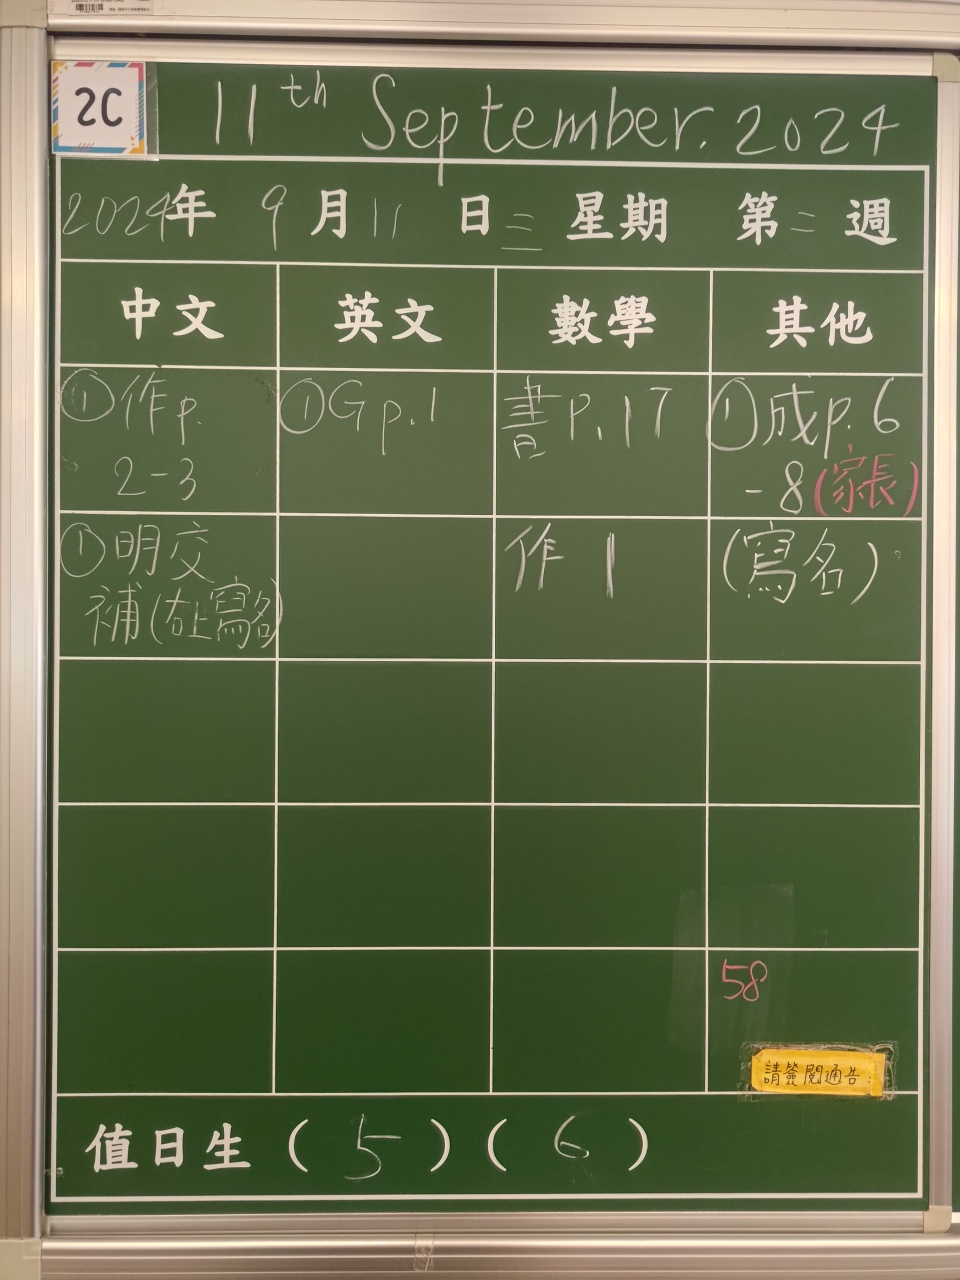 2C
11th September. 2024
2024年 9月11日 三 星期 第二週
中文 英文 數學 其他
①作p. ①G p.1 書P.17 ①成p.6
2-3 -8(家長)
①明交 作 1 (寫名)
補(右上寫名)
58
請簽閱通告:
值日生 (5)(6)